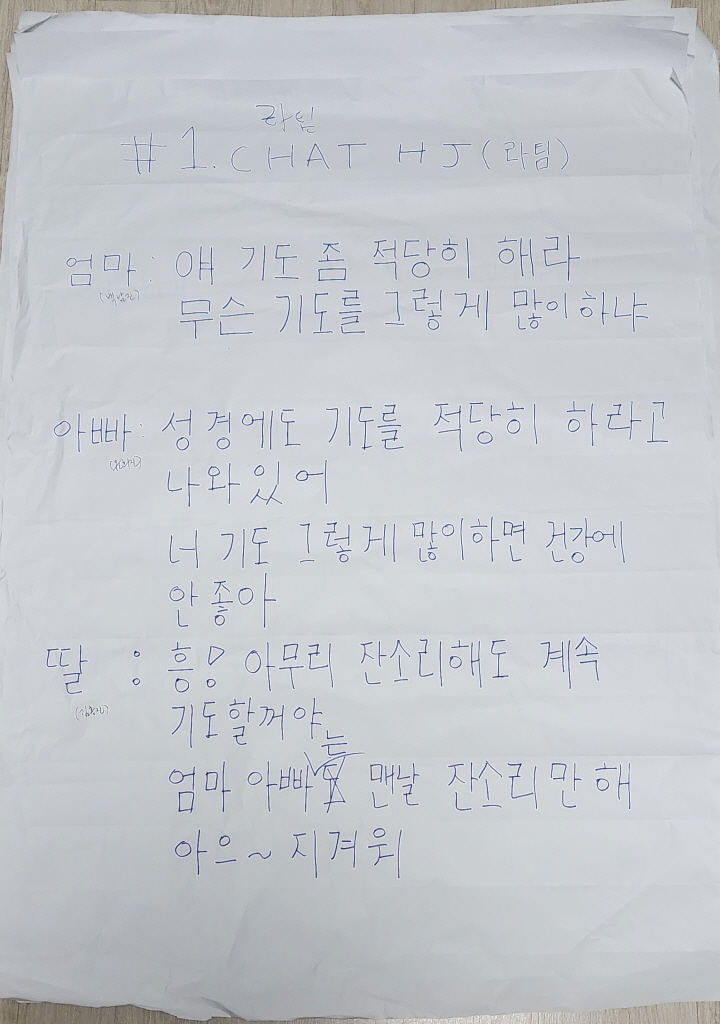 라팀
#1. CHAT HJ (라팀)
엄마: 얘 기도 좀 적당히 해라
무슨 기도를 그렇게 많이하냐
아빠: 성경에도 기도를 적당히 하라고
나와있어
너 기도 그렇게 많이하면 건강에
안좋아
딸 : 흥! 아무리 잔소리해도 계속
기도할꺼야
는
엄마 아빠 맨날 잔소리만해
아으~ 지겨워